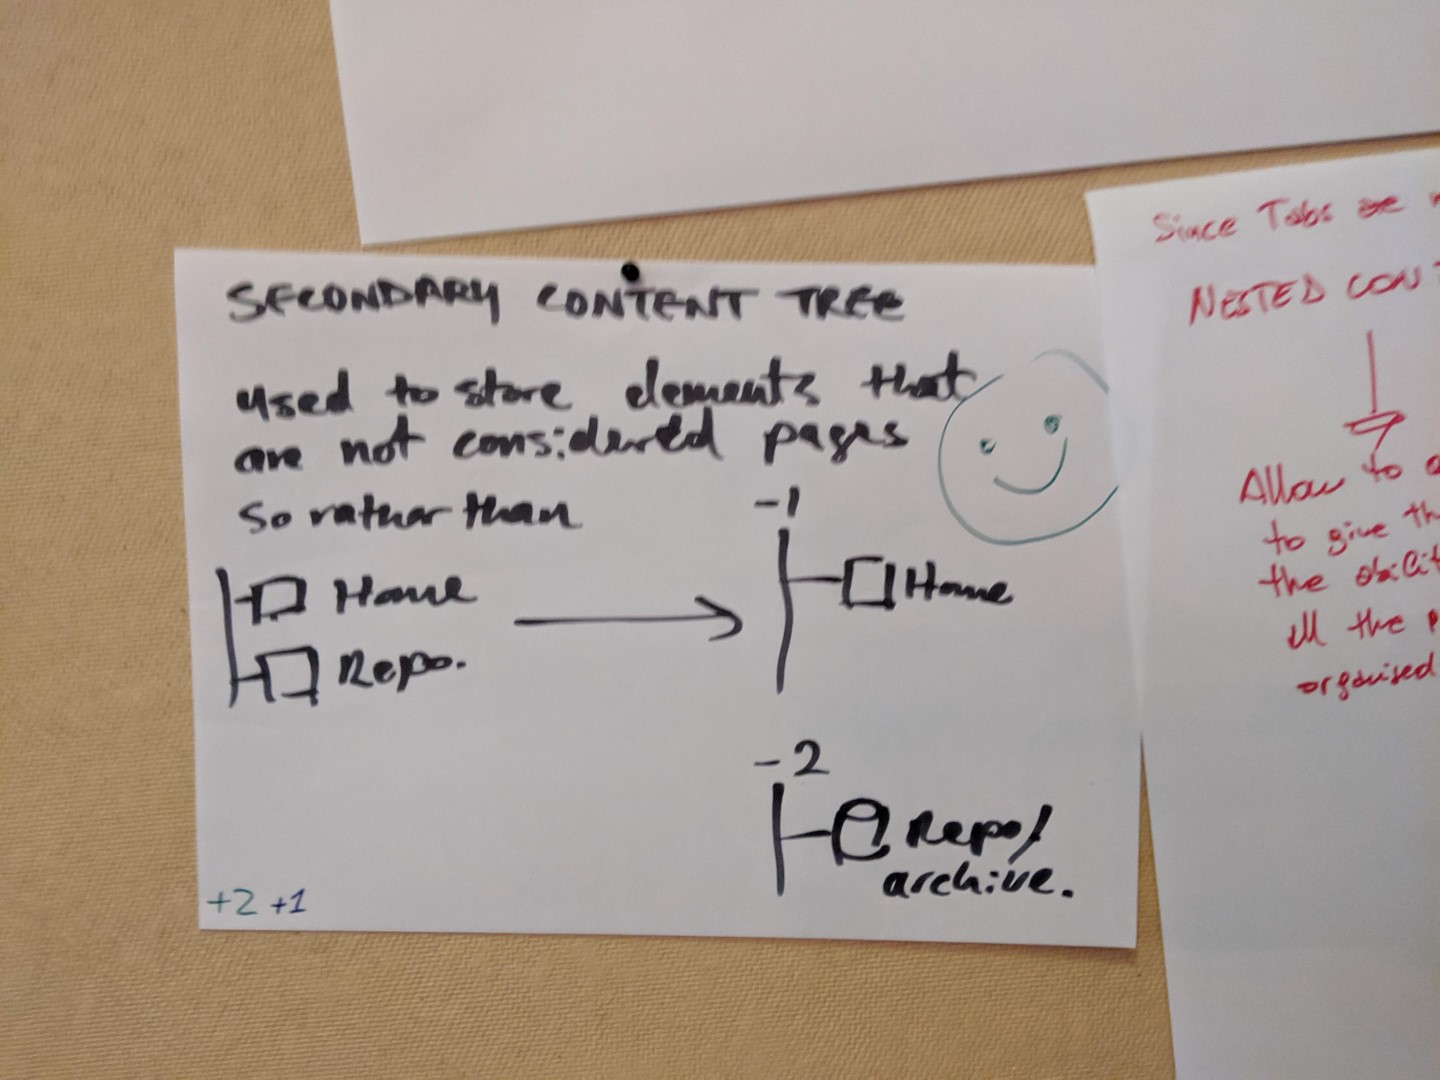 SECONDARY CONTENT TREE
used to store elements that
are not considered pages
so rather than
Home
Repo.
-1
Home
-2
Repo/
archive.
+2 +1
Since Tabs are
NESTED CON
Allow to
to give th
the
all the
organised